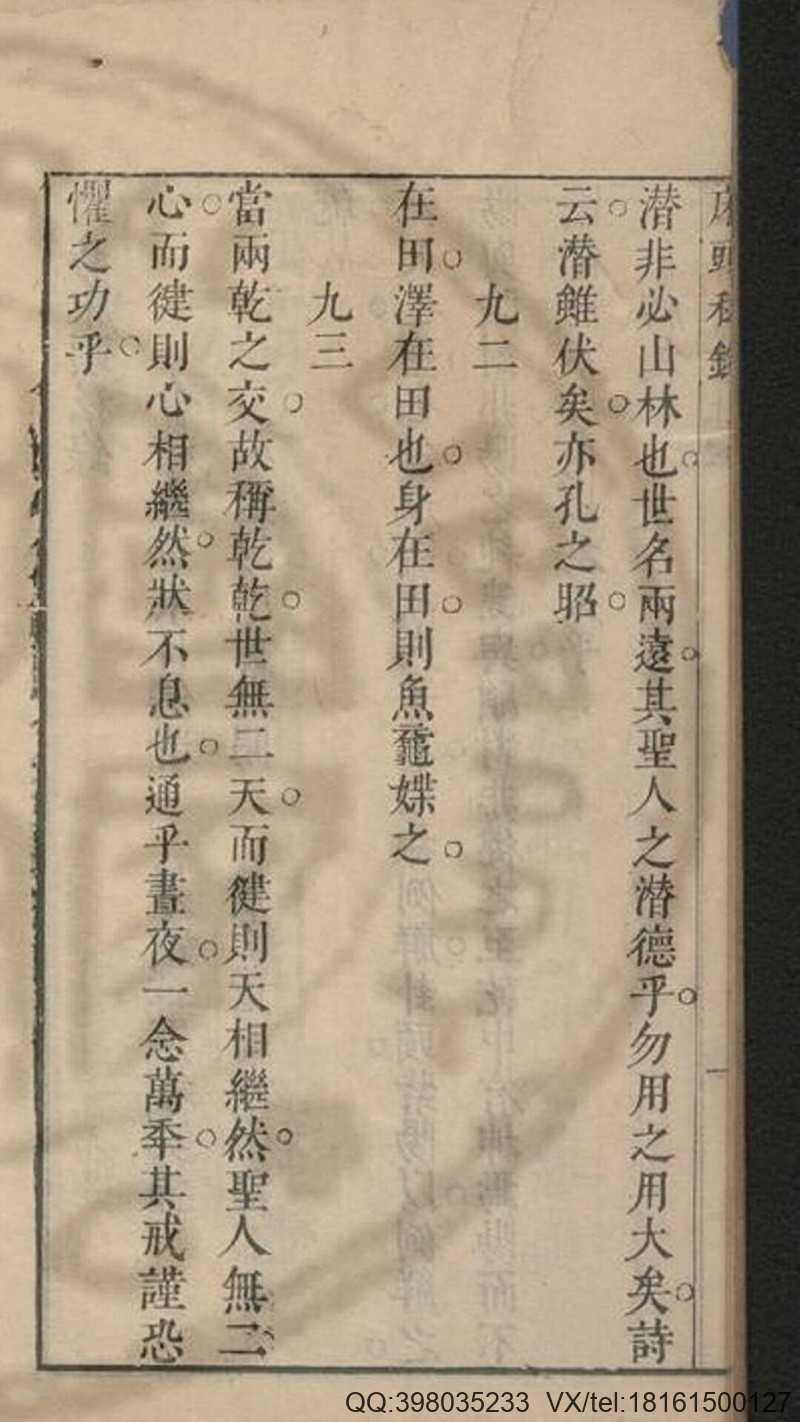 床頭秘錄
潜非必山林也。世名兩遠。其聖人之潜德乎。勿用之用大矣。詩
云。潜雖伏矣。亦孔之昭。
九二
在田。澤在田也。身在田。則魚鼈媟之。
九三
當兩乾之交。故稱乾乾。世無二天。而健則天相繼然。聖人無二
心。而健則心相繼然。狀不息也。通乎晝夜。一念萬年。其戒謹恐
懼之功乎。
QQ:398035233 VX/tel:18161500127